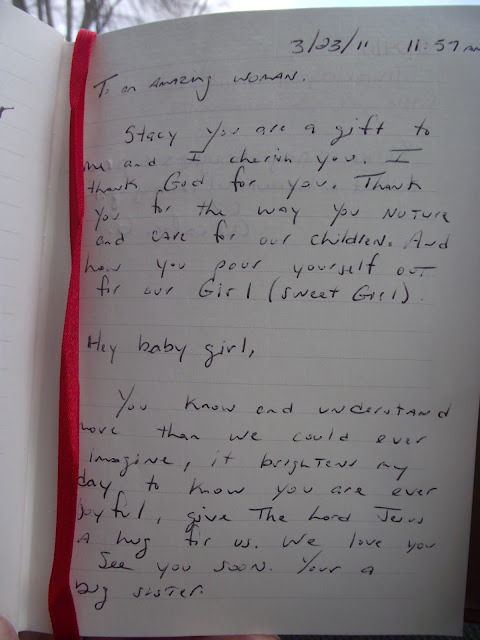 3/23/11 11:57 AM
To an AMAZING WOMAN.
Stacy you are a gift to
me and I cherish you. I
thank God for you. THANK
you for the way you NUTURE
and care for our children. And
how you pour yourself out
for our Girl (Sweet Girl).
Hey baby girl,
You know and understand
more than we could ever
imagine, it brightens my
day to know you are ever
joyful, give The Lord Jesus
A hug for us. We love you
See you soon. Your a
big sister.